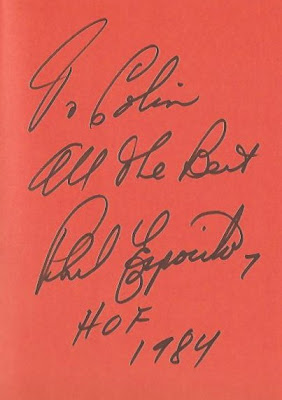 To Colin
All the Best
Phil Esposito 7
HOF
1984